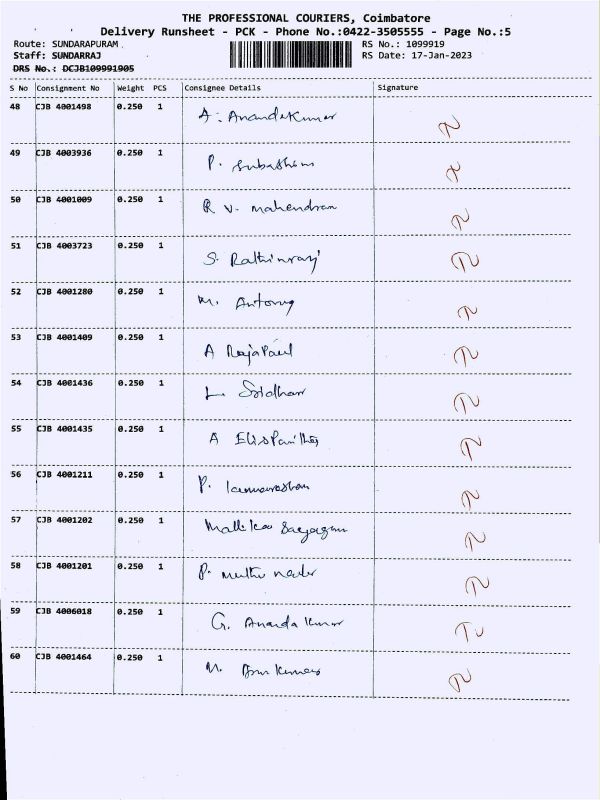 THE PROFESSIONAL COURIERS, Coimbatore
Delivery Runsheet - PCK - Phone No.:0422-3505555 - Page No.:5
Route: SUNDARAPURAM. RS No.: 1099919
Staff: SUNDARRAJ RS Date: 17-Jan-2023
DRS No.: DCJB109991905
S No Consignment No Weight PCS Consignee Details Signature
48 CJB 4001498 0.250 1 A. Anandakumar
49 CJB 4003936 0.250 1 P.
50 CJB 4001009 0.250 1 R V. mahendran
51 CJB 4003723 0.250 1 S.
52 CJB 4001280 0.250 1 M. Antony
53 CJB 4001409 0.250 1 A RajaPaul
54 CJB 4001436 0.250 1 L. Sridhar
55 CJB 4001435 0.250 1 A
56 CJB 4001211 0.250 1 P.
57 CJB 4001202 0.250 1 Mallika
58 CJB 4001201 0.250 1 P. muthu
59 CJB 4006018 0.250 1 G. Ananda kumar
60 CJB 4001464 0.250 1 M.